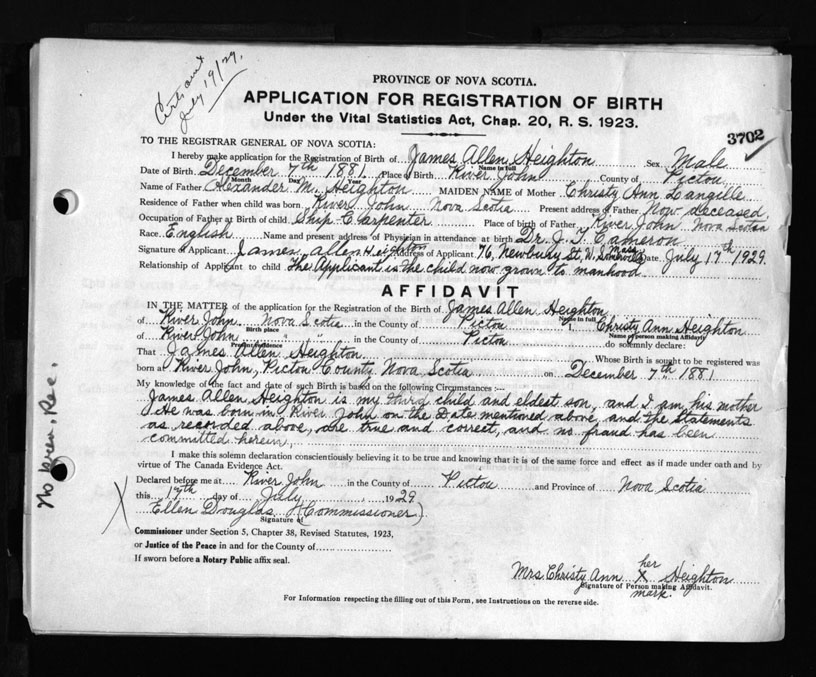 Cert. sent
July 19/29.
PROVINCE OF NOVA SCOTIA.
APPLICATION FOR REGISTRATION OF BIRTH
Under the Vital Statistics Act, Chap. 20, R. S. 1923.
3702
TO THE REGISTRAR GENERAL OF NOVA SCOTIA:
I hereby make application for the Registration of Birth of James Allen Heighton Sex Male
Name in full
Date of Birth December 7th 1881 Place of Birth River John County of Pictou
Month Day Year
Name of Father Alexander M. Heighton MAIDEN NAME of Mother Christy Ann Langille
Residence of Father when child was born River John Nova Scotia Present address of Father Now deceased,
Occupation of Father at Birth of child Ship Carpenter Place of birth of Father River John Nova Scotia
Race English Name and present address of Physician in attendance at birth Dr. J. Cameron
Signature of Applicant James Allen Heighton Address of Applicant 76, Newbury St, W. Somerville Mass Date July 17th 1929
Relationship of Applicant to child The Applicant is the child now grown to manhood.
AFFIDAVIT
IN THE MATTER of the application for the Registration of the Birth of James Allen Heighton
Name in full
of River John Nova Scotia in the County of Pictou I, Christy Ann Heighton
Birth place Name of person making Affidavit
of River John " in the County of Pictou do solemnly declare:
Present residence
That James Allen Heighton Whose Birth is sought to be registered was
born at River John, Pictou County Nova Scotia on December 7th 1881
My knowledge of the fact and date of such Birth is based on the following Circumstances :—
James Allen Heighton is my third child and eldest son, and I am his mother
He was born in River John on the Date mentioned above, and the Statements
as recorded above, are true and correct, and no fraud has been
committed herein,
I make this solemn declaration conscientiously believing it to be true and knowing that it is of the same force and effect as if made under oath and by
virtue of The Canada Evidence Act.
Declared before me at River John in the County of Pictou and Province of Nova Scotia
this 17th day of July, 1929
X Ellen Douglas (Commissioner)
Signature of
Commissioner under Section 5, Chapter 38, Revised Statutes, 1923,
or Justice of the Peace in and for the County of
If sworn before a Notary Public affix seal.
Mrs. Christy Ann her X mark Heighton
Signature of Person making Affidavit.
For Information respecting the filling out of this Form, see Instructions on the reverse side.
No prev. Rec.